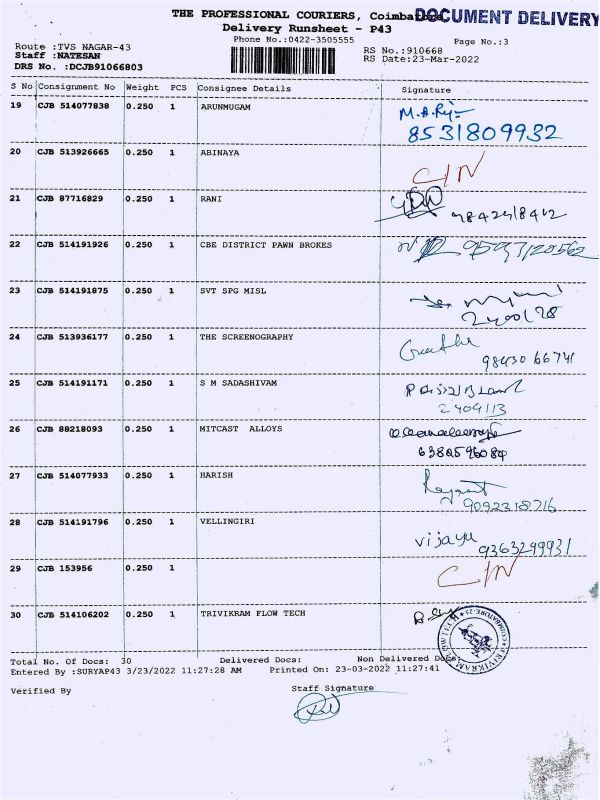 THE PROFESSIONAL COURIERS, Coimbatore
DOCUMENT DELIVERY
Delivery Runsheet - P43
Phone No.:0422-3505555
Page No.:3
Route :TVS NAGAR-43
RS No.:910668
Staff :NATESAN
RS Date:23-Mar-2022
DRS No. :DCJB91066803
S No Consignment No Weight PCS Consignee Details Signature
19 CJB 514077838 0.250 1 ARUNMUGAM
8531809932
20 CJB 513926665 0.250 1 ABINAYA C/N
21 CJB 87716829 0.250 1 RANI
9842418412
22 CJB 514191926 0.250 1 CBE DISTRICT PAWN BROKES
23 CJB 514191875 0.250 1 SVT SPG MISL
24 CJB 513936177 0.250 1 THE SCREENOGRAPHY
98430 66741
25 CJB 514191171 0.250 1 S M SADASHIVAM
2404113
26 CJB 88218093 0.250 1 MITCAST ALLOYS
27 CJB 514077933 0.250 1 HARISH
9092318716
28 CJB 514191796 0.250 1 VELLINGIRI vijaya
9363299931
29 CJB 153956 0.250 1 C/N
30 CJB 514106202 0.250 1 TRIVIKRAM FLOW TECH
Total No. Of Docs: 30 Delivered Docs: Non Delivered Docs:
Entered By :SURYAP43 3/23/2022 11:27:28 AM Printed On: 23-03-2022 11:27:41
Verified By Staff Signature